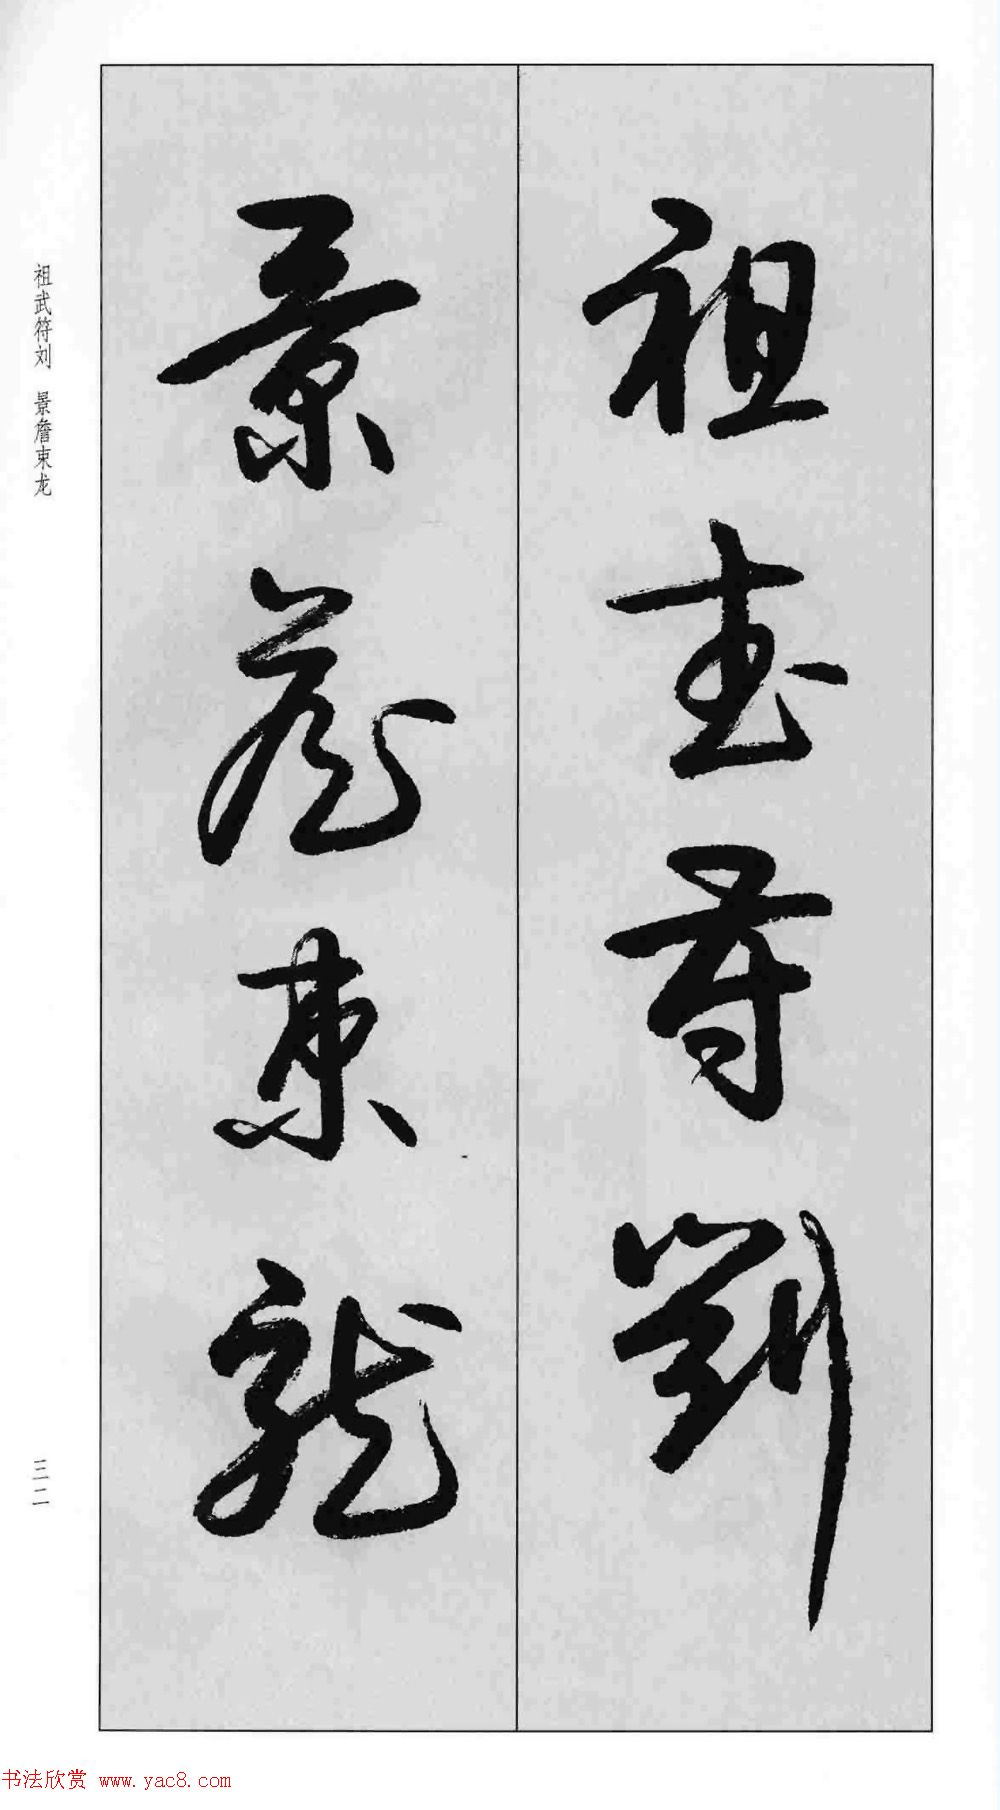 祖武符劉
景詹束龍
祖武符刘 景詹束龙
三二
书法欣赏 www.yac8.com